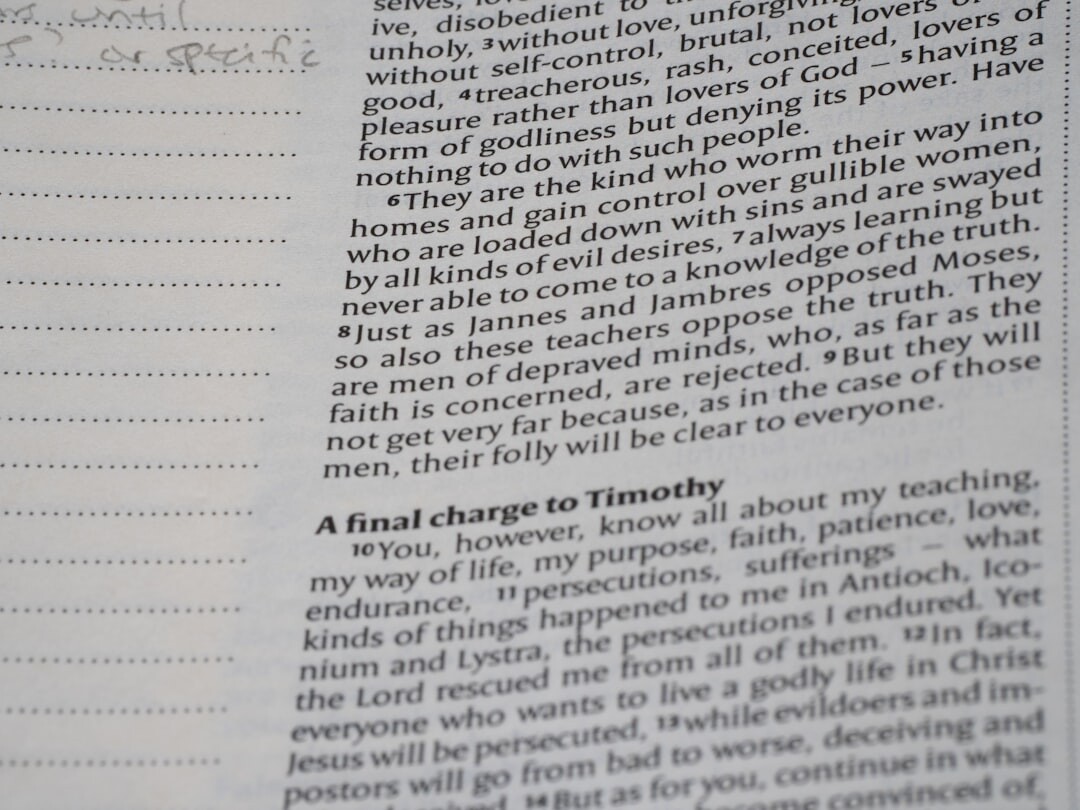 until
? or specific
selves,
ive, disobedient to
unholy, 3without love, unforgiving,
without self-control, brutal, not lovers
good, 4treacherous, rash, conceited, lovers of
pleasure rather than lovers of God – 5having a
form of godliness but denying its power. Have
nothing to do with such people.
6They are the kind who worm their way into
homes and gain control over gullible women,
who are loaded down with sins and are swayed
by all kinds of evil desires, 7always learning but
never able to come to a knowledge of the truth.
8Just as Jannes and Jambres opposed Moses,
so also these teachers oppose the truth. They
are men of depraved minds, who, as far as the
faith is concerned, are rejected. 9But they will
not get very far because, as in the case of those
men, their folly will be clear to everyone.
A final charge to Timothy
10You, however, know all about my teaching,
my way of life, my purpose, faith, patience, love,
endurance, 11persecutions, sufferings – what
kinds of things happened to me in Antioch, Ico-
nium and Lystra, the persecutions I endured. Yet
the Lord rescued me from all of them. 12In fact,
everyone who wants to live a godly life in Christ
Jesus will be persecuted, 13while evildoers and im-
postors will go from bad to worse, deceiving and
14But as for you, continue in what
become convinced of,